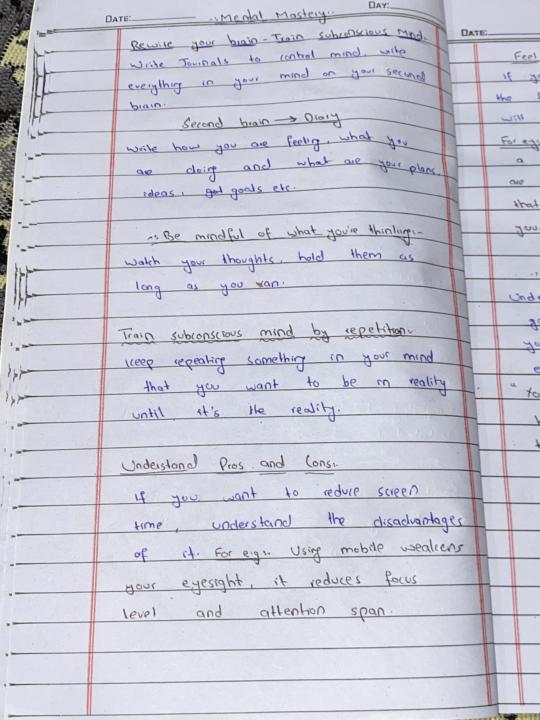 DATE:
DAY:
-:- Mental Mastery:-
Rewire your brain - Train Subconscious Mnd.
Write Journals to control mind, write
everything in your mind on your second
brain.
Second brain → Diary
Write how you are feeling, what you
are doing and what are your plans,
ideas, goals etc.
-:- Be mindful of what you're thinking:-
Watch your thoughts, hold them as
long as you can.
Train subconscious mind by repetition:-
Keep repeating something in your mind
that you want to be in reality
until it's the reality.
Understand Pros and Cons:-
If you want to reduce screen
time, understand the disadvantages
of it. For eg:- Using mobile weakens
your eyesight, it reduces focus
level and attention span.
DATE:
Feel
if yo
the s
will
For eg:
a
are
that
you
Unde
go
yo
e
"to